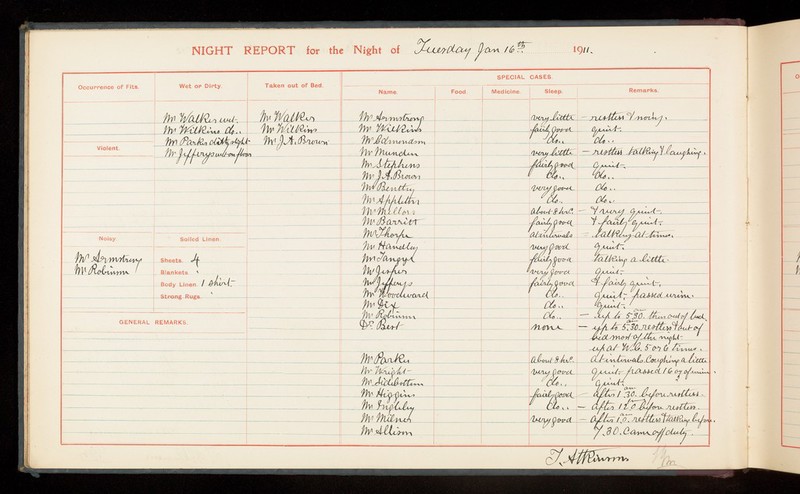 NIGHT REPORT for the Night of Tuesday Jan 16th 1911.
Occurrence of Fits.
Wet or Dirty.
Taken out of Bed.
SPECIAL CASES.
Name.
Food.
Medicine.
Sleep.
Remarks.
Mr Walker wet.
Mr Wilkins do..
Mr Parks
Mr Jefferys wet on floor
Mr Walker
Mr Wilkins
Mr J.A. Brown
Violent.
Noisy.
Mr Armstrong
Mr Robinson
Soiled Linen.
Sheets. 4
Blankets.
Body Linen. 1 shirt.
Strong Rugs.
GENERAL REMARKS.
Mr Armstrong very little – restless & noisy.
Mr Wilkins fairly good quiet.
Mr Edmondson do.. do..
Mr Munden very little – restless talking & laughing.
Mr Stephens fairly good quiet.
Mr J.A. Brown do.. do..
Mr Bentley very good do..
Mr Appleton do.. do..
Mr Mellors about 8 hrs. – & very quiet.
Mr Barritt fairly good & fairly quiet.
Mr Thorpe at intervals – talking at times.
Mr Handley very good quiet.
Mr fairly good talking a little
Mr Jesper very good quiet.
Mr Jefferys fairly good & fairly quiet.
Mr Woodward do.. quiet. passed urine.
Mr Dix do.. quiet.
Mr Robinson do.. – up to 5.30. then out of bed.
Dr Bert none – up to 5.30. restless & out of
bed most of the night
up at W.C. 5 or 6 times.
Mr Parks about 8 hrs. at intervals. Coughing a little
Mr Wright very good quiet. passed 16 oz of urine.
Mr Sidebottom do.. quiet.
Mr Higgins fairly good – after 1.30. before restless.
Mr Ingleby do.. – after before restless.
Mr Milner very good – after restless & talking before.
Mr Allison 7.30. Came off duty.
J. Atkinson